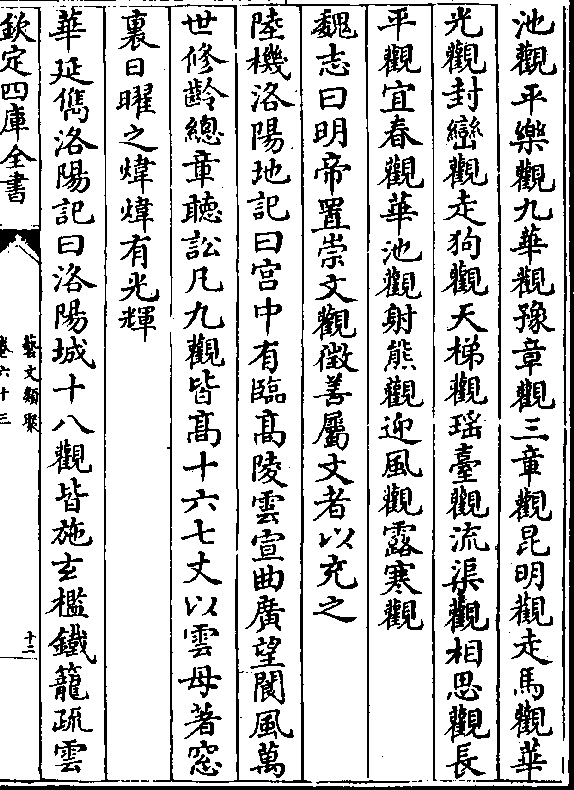 池觀平樂觀九華觀豫章觀三章觀昆明觀走馬觀華
光觀封巒觀走狗觀天梯觀瑶臺觀流渠觀相思觀長
平觀宜春觀華池觀射熊觀迎風觀露寒觀
魏志曰明帝置崇文觀徵善屬文者以充之
陸機洛陽地記曰宫中有臨髙陵雲宣曲廣望閬風萬
世修齡總章聽訟凡九觀皆髙十六七丈以雲母著窓
裏日曜之煒煒有光輝
華延儁洛陽記曰洛陽城十八觀皆施玄檻鐵籠疏雲
欽定四庫全書
藝文類聚
卷六十三
十二